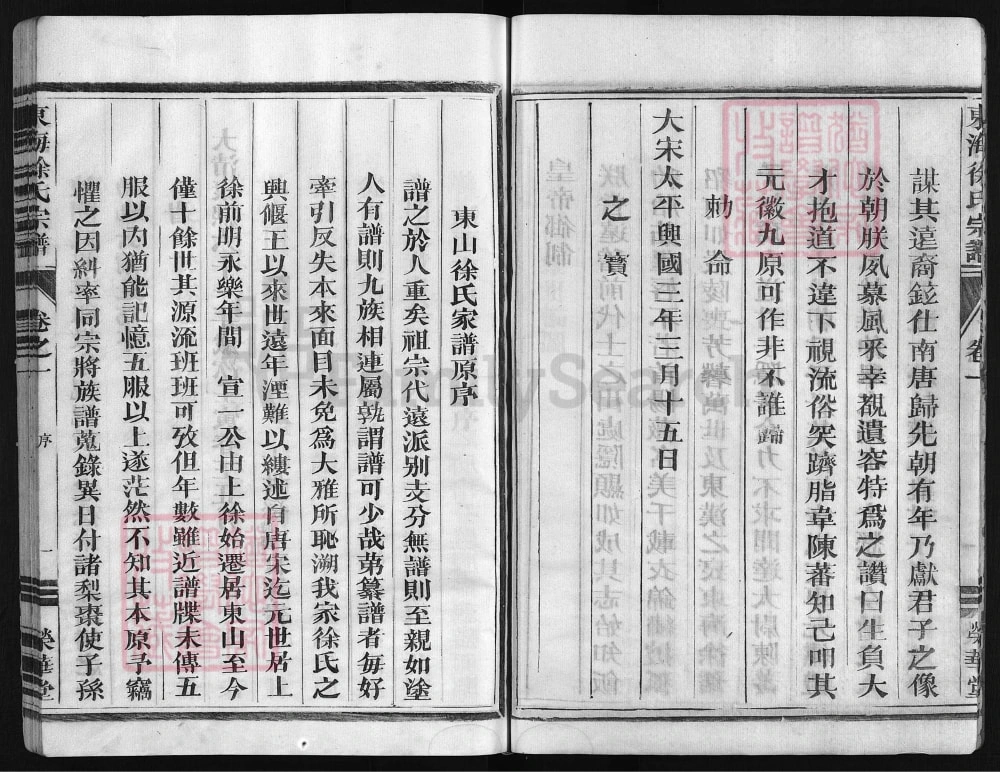 東海徐氏宗譜
卷一
榮華堂
謀其遠裔鉉仕南唐歸先朝有年乃獻君子之像
於朝朕夙慕風釆幸覩遺容特爲之讚曰生負大
才抱道不違下視流俗突躋脂韋陳蕃知己叩其
元徽九原可作非不誰歸
勅命
大宋太平興國三年三月十五日
之寶
東山徐氏家譜原序
譜之於人重矣祖宗代遠派别支分無譜則至親如塗
人有譜則九族相連屬孰謂譜可少哉第纂譜者每好
牽引反失本來面目未免爲大雅所恥溯我家徐氏之
興偃王以來世遠年湮難以縷述自唐宋迄元世居上
徐前明永樂年間 宣一公由上徐始遷居東山至今
僅十餘世其源流班班可攷但年數雖近譜牒未傳五
服以內猶能記憶五服以上遂茫然不知其本原予竊
懼之因糾率同宗將族譜蒐錄異日付諸梨棗使子孫
東海徐氏宗譜
卷之一
序
一
榮華堂